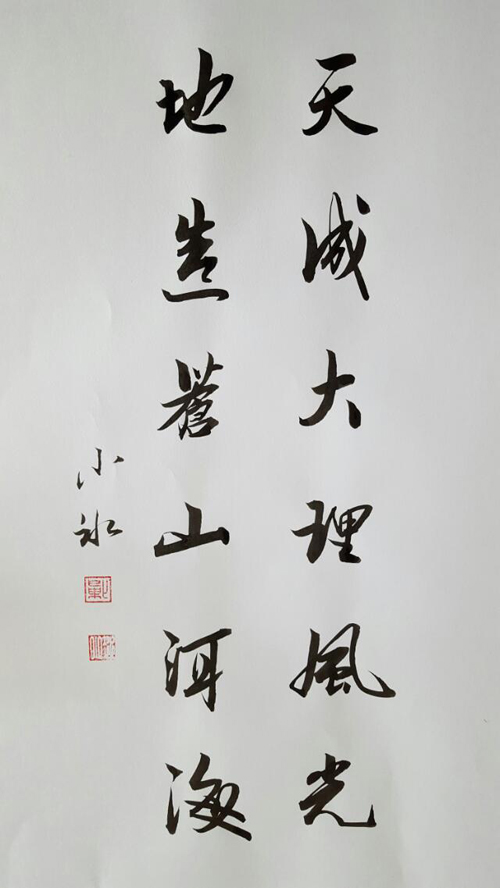 天成大理風光
地造蒼山洱海
小冰